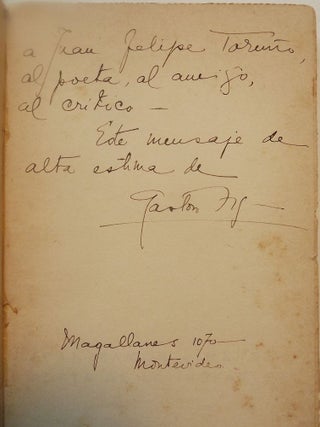 a Juan Felipe Toruño,
al poeta, al amigo,
al crítico —
Este mensaje de
alta estima de
Gaston Fig
Magallanes 1070
Montevideo